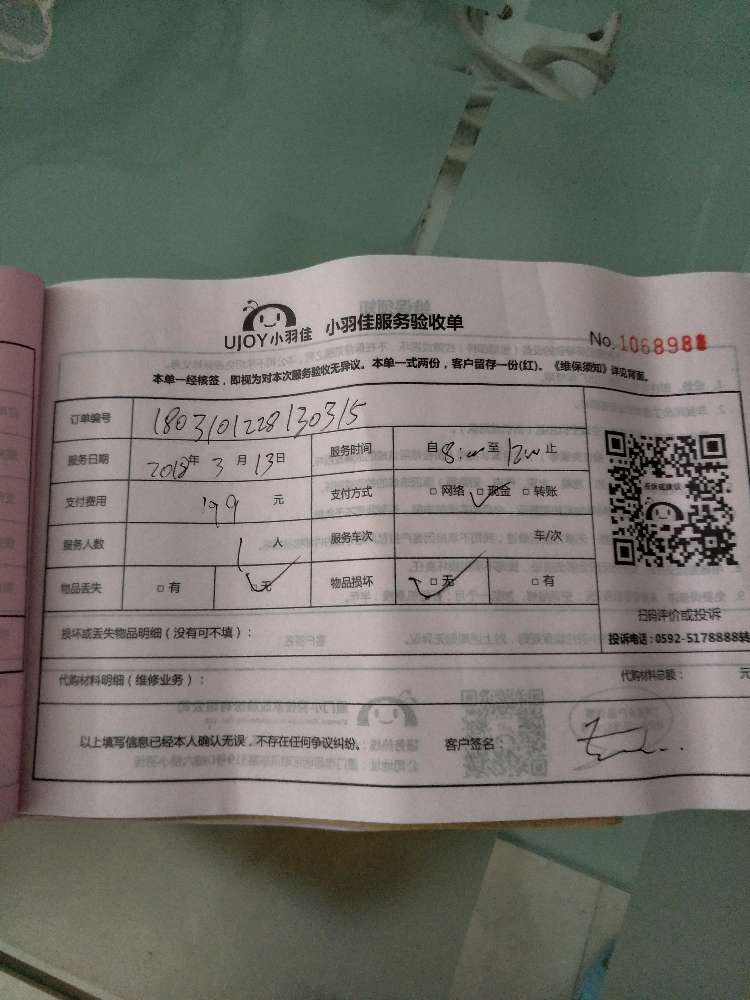 UJOY小羽佳 小羽佳服务验收单
No. 1068981
本单一经核签，即视为对本次服务验收无异议。本单一式两份，客户留存一份(红)。《维保须知》详见背面。
订单编号 1803101228130315
服务日期 2018年 3月 13日 服务时间 自 8:00 至 1200 止
支付费用 199 元 支付方式 □ 网络 □ 现金 □ 转账
服务人数 1 人 服务车次 车/次
物品丢失 □ 有 □ 无 物品损坏 □ 无 □ 有
投诉或建议
扫码评价或投诉
投诉电话：0592-5178888转
损坏或丢失物品明细（没有可不填）：
代购材料明细（维修业务）： 代购材料总额： 元
以上填写信息已经本人确认无误，不存在任何争议纠纷。 客户签名：